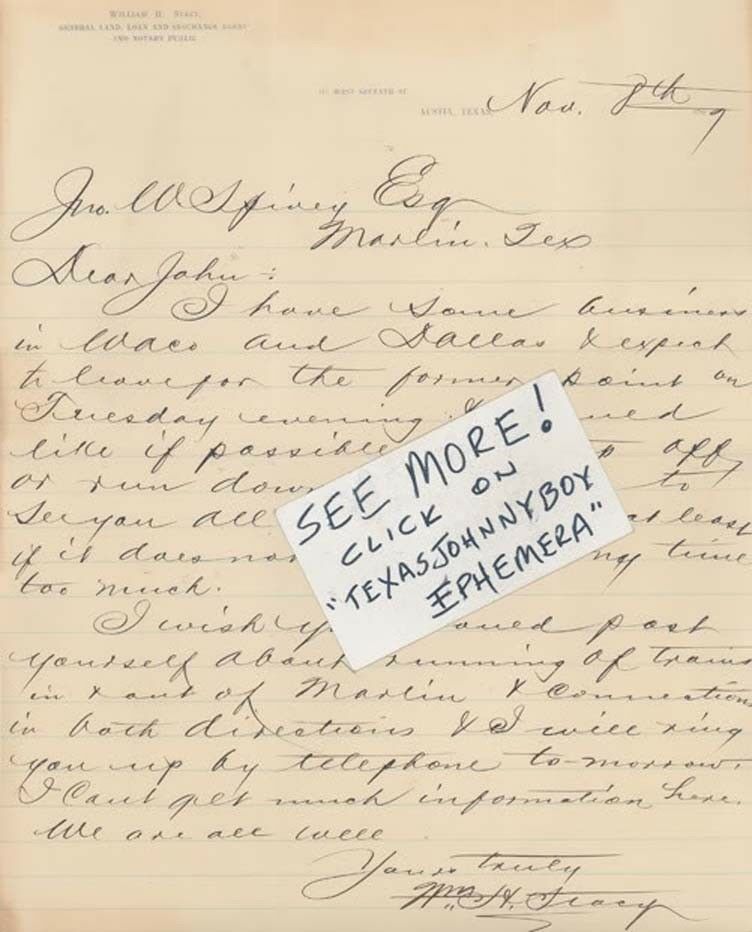 WILLIAM H. STACY,
GENERAL LAND, LOAN AND EXCHANGE AGENT
AND NOTARY PUBLIC
WEST SEVENTH ST.
AUSTIN, TEXAS, Nov. 8th 9
Jno. W Spivey Esq
Marlin. Tex
Dear John:
I have some business
in Waco and Dallas & expect
to leave for the former point on
Tuesday evening &
like if possible off
or run down to
see you all at least
if it does not time
too much.
I wish post
yourself about running of trains
in & out of Marlin & connections
in both directions & I will ring
you up by telephone to-morrow.
I Cant get much information here.
We are all well
Yours truly
Wm. H. Stacy
SEE MORE!
CLICK ON
"TEXASJOHNNYBOY
EPHEMERA"